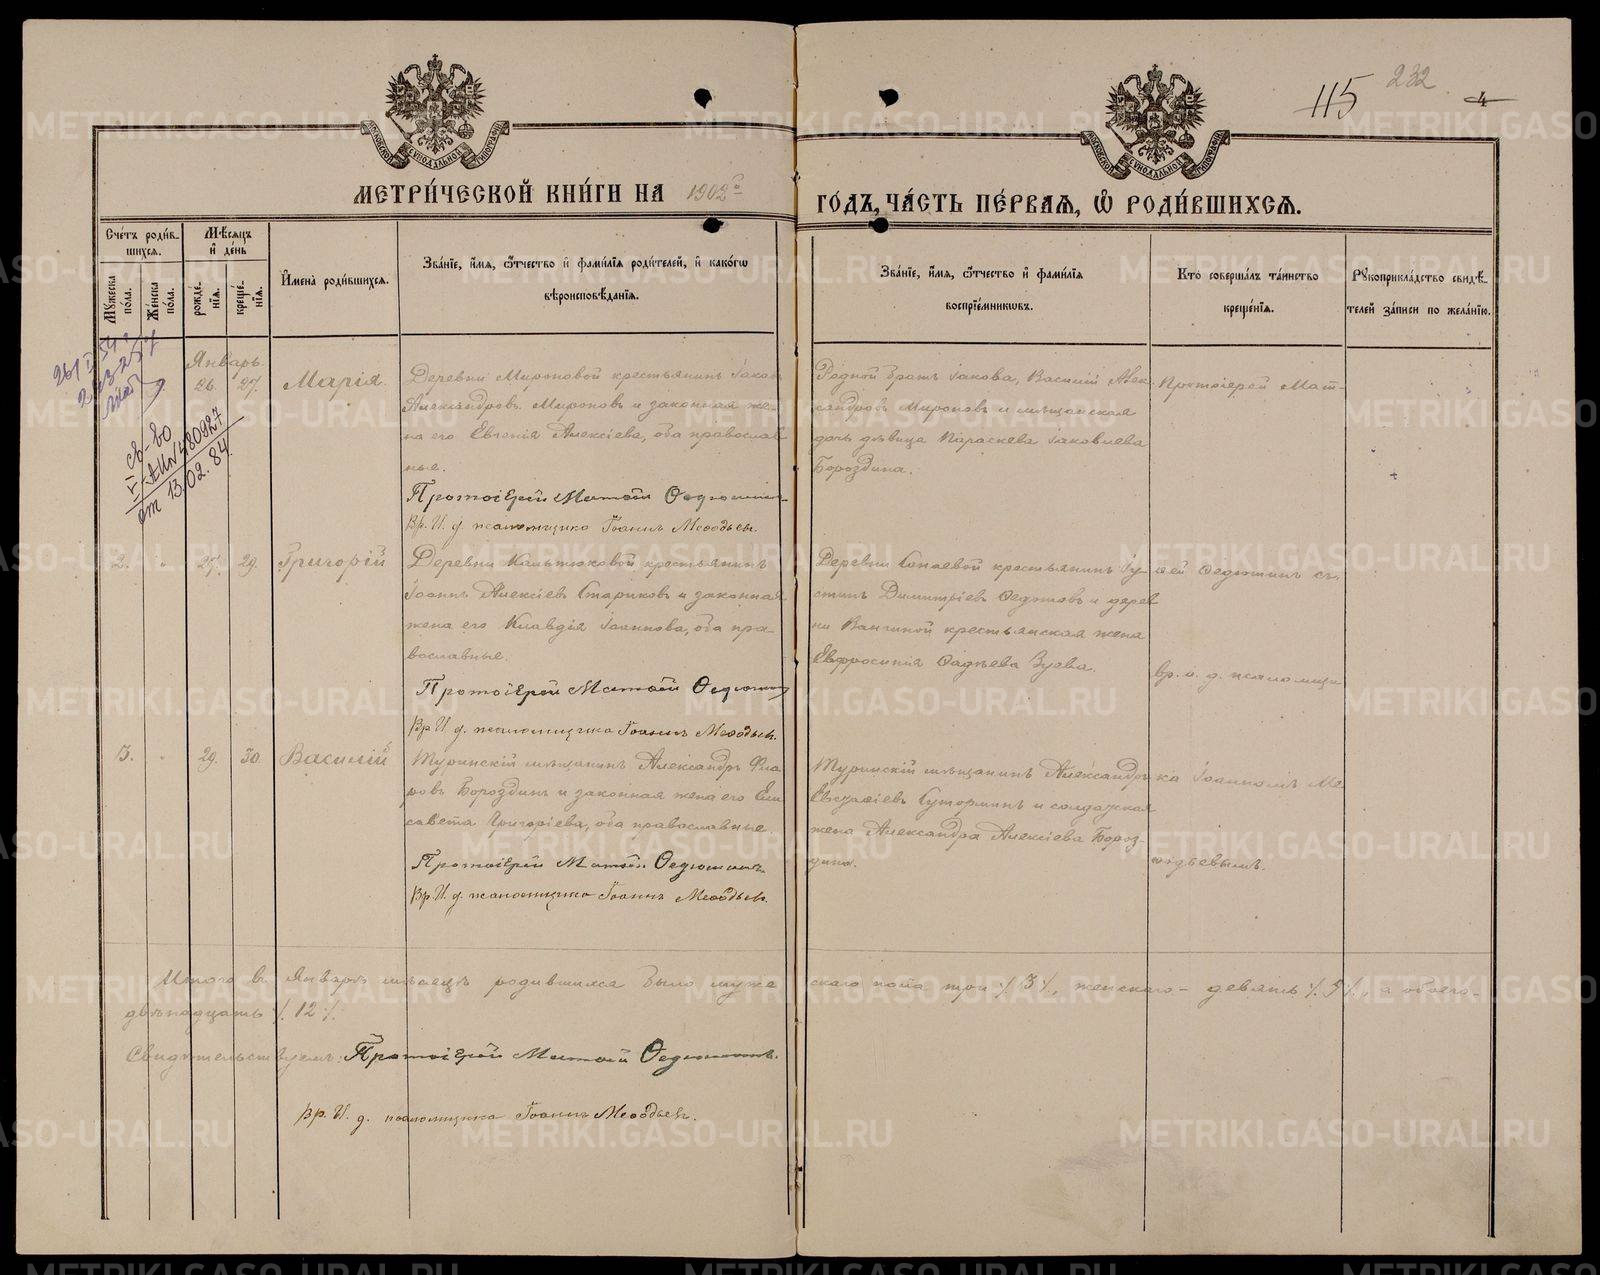 115 232 4
МОСКОВСКОЙ СѴНОДАЛЬНОЙ ТИПОГРАФІИ
МОСКОВСКОЙ СѴНОДАЛЬНОЙ ТИПОГРАФІИ
МЕТРИ́ЧЕСКОЙ КНИ́ГИ НА 1902й ГОДЪ, ЧА́СТЬ ПЕ́РВАѦ, Ѡ҆ РОДИ́ВШИХСѦ.
Сче́тъ роди́в-
шихсѧ.
Мꙋжеска по́ла.
Же́нска по́ла.
Мѣ́сѧцъ
и҆ де́нь
рожде́нїѧ.
креще́нїѧ.
И҆мена̀ роди́вшихсѧ.
Зва́нїе, и҆́мѧ, ѻ҆́тчество и҆ фами́лїѧ роди́телей, и҆ како́гѡ
вѣроисповѣ́данїѧ.
Зва́нїе, и҆́мѧ, ѻ҆́тчество и҆ фами́лїѧ
воспрїе́мникѡвъ.
Кто̀ соверша́лъ та́инство
креще́нїѧ.
Рꙋкоприкла́дство свидѣ́-
телей за́писи по жела́нїю.
св-во
V-АИ № 480927
от 13.02.84
Январь.
9. 26. 27. Марія.
Деревни Мироновой крестьянинъ Іаковъ
Александровъ Мироновъ и законная же-
на его Евгенія Алексіева, оба православ
ные.
Протоіерей Матѳій Ѳедюшинъ
Вр. И. д. псаломщика Іоаннъ Меѳодьевъ.
Родной братъ Іакова, Василій Алек-
сандровъ Мироновъ и мѣщанская
дочь дѣвица Параскева Іаковлева
Бороздина.
Протоіерей Мат-
2. " 27. 29. Григорій
Деревни Калтюковой крестьянинъ
Іоаннъ Алексіевъ Стариковъ и законная
жена его Клавдія Іоаннова, оба пра-
вославные.
Протоіерей Матѳій Ѳедюшинъ
Вр. И. д. псаломщика Іоаннъ Меѳодьевъ.
Деревни Сопаевой крестьянинъ Іу-
стинъ Димитріевъ Ѳедотовъ и дерев
ни Ванчиной крестьянская жена
Евфросинія Ѳадѣева Зуева.
ѳей Ѳедюшинъ съ
вр. и. д. псаломщи
3. " 29. 30. Василій
Туринскій мѣщанинъ Александръ Фла
ровъ Бороздинъ и законная жена его Ели
савета Григоріева, оба православные.
Протоіерей Матѳій Ѳедюшинъ
Вр. И. д. псаломщика Іоаннъ Меѳодьевъ.
Туринскій мѣщанинъ Александръ
Евсталіевъ Сутормин и солдатская
жена Александра Алексіева Бороз-
дина.
ка Іоанномъ Ме
ѳодьевымъ.
Итого въ Январѣ мѣсяцѣ родившихся было муже скаго пола три %3%, женскаго - девять %9%, а обоего-
двѣнадцать %12%.
Свидѣтельствуемъ: Протоіерей Матѳій Ѳедюшинъ.
Вр. И. д. псаломщика Іоаннъ Меѳодьевъ.
METRIKI.GASO-URAL.RU